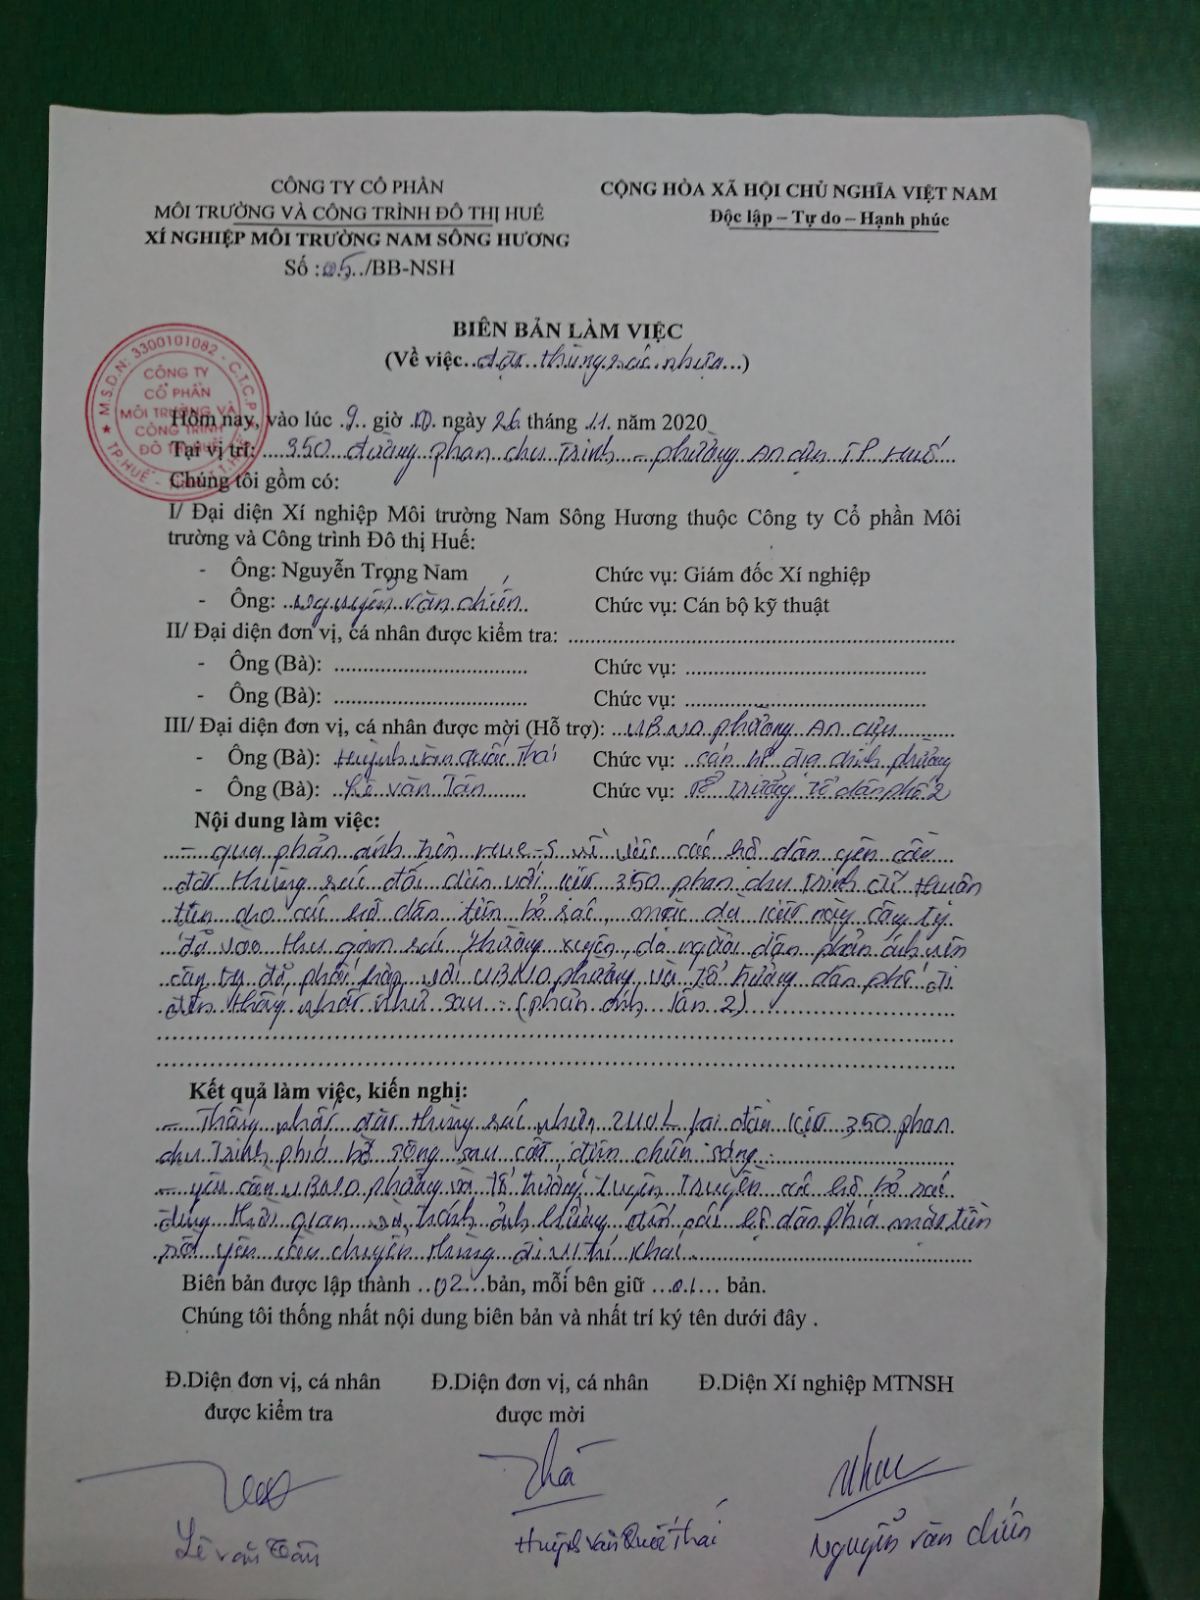 CÔNG TY CỔ PHẦN
MÔI TRƯỜNG VÀ CÔNG TRÌNH ĐÔ THỊ HUẾ
XÍ NGHIỆP MÔI TRƯỜNG NAM SÔNG HƯƠNG
Số :05../BB-NSH
CỘNG HÒA XÃ HỘI CHỦ NGHĨA VIỆT NAM
Độc lập – Tự do – Hạnh phúc
BIÊN BẢN LÀM VIỆC
(Về việc..đặt..thùng.rác.nhựa...)
M.S.D.N: 3300101082 - C.T.C.P
CÔNG TY
CỔ PHẦN
MÔI TRƯỜNG VÀ
CÔNG TRÌNH
ĐÔ THỊ HUẾ
TP.HUẾ
Hôm nay, vào lúc .9.. giờ 10. ngày 26 tháng .11. năm 2020
Tại vị trí:....350...đường phan chu Trinh – phường An cựu TP Huế
Chúng tôi gồm có:
I/ Đại diện Xí nghiệp Môi trường Nam Sông Hương thuộc Công ty Cổ phần Môi
trường và Công trình Đô thị Huế:
- Ông: Nguyễn Trọng Nam Chức vụ: Giám đốc Xí nghiệp
- Ông: ..Nguyễn.văn.chiến. Chức vụ: Cán bộ kỹ thuật
II/ Đại diện đơn vị, cá nhân được kiểm tra: ..........
- Ông (Bà): .......... Chức vụ: ..........
- Ông (Bà): .......... Chức vụ: ..........
III/ Đại diện đơn vị, cá nhân được mời (Hỗ trợ): ..UBND phường An cựu..........
- Ông (Bà): Huỳnh văn Quốc Thái Chức vụ: cán bộ địa chính phường
- Ông (Bà): ..Lê văn Tân....... Chức vụ: Tổ Trưởng tổ dân phố 2
Nội dung làm việc:
– qua phản ánh trên Hue-S về việc các hộ dân yêu cầu
đặt thùng rác đối diện với kiệt 350 phan chu Trinh để thuận
tiện cho các hộ dân tiện bỏ rác, mặc dù kiệt này công ty
đã vào thu gom rác thường xuyên, do người dân phản ánh nên
công ty đã phối hợp với UBND phường và tổ trưởng dân phố đi
đến thống nhất như sau : (phản ánh lần 2)
Kết quả làm việc, kiến nghị:
– Thống nhất đặt thùng rác nhựa 240L tại đầu kiệt 350 phan
chu Trinh phía bờ sông sau cột điện chiếu sáng.
– yêu cầu UBND phường và tổ trưởng tuyên truyền các hộ bỏ rác
đúng thời gian và tránh ảnh hưởng đến các hộ dân phía mặt tiền
rồi yêu cầu chuyển thùng đi vị trí khác.
Biên bản được lập thành ..02...bản, mỗi bên giữ ...01... bản.
Chúng tôi thống nhất nội dung biên bản và nhất trí ký tên dưới đây .
Đ.Diện đơn vị, cá nhân
được kiểm tra
Đ.Diện đơn vị, cá nhân
được mời
Đ.Diện Xí nghiệp MTNSH
Lê văn Tân
Huỳnh Văn Quốc Thái
Nguyễn văn chiến